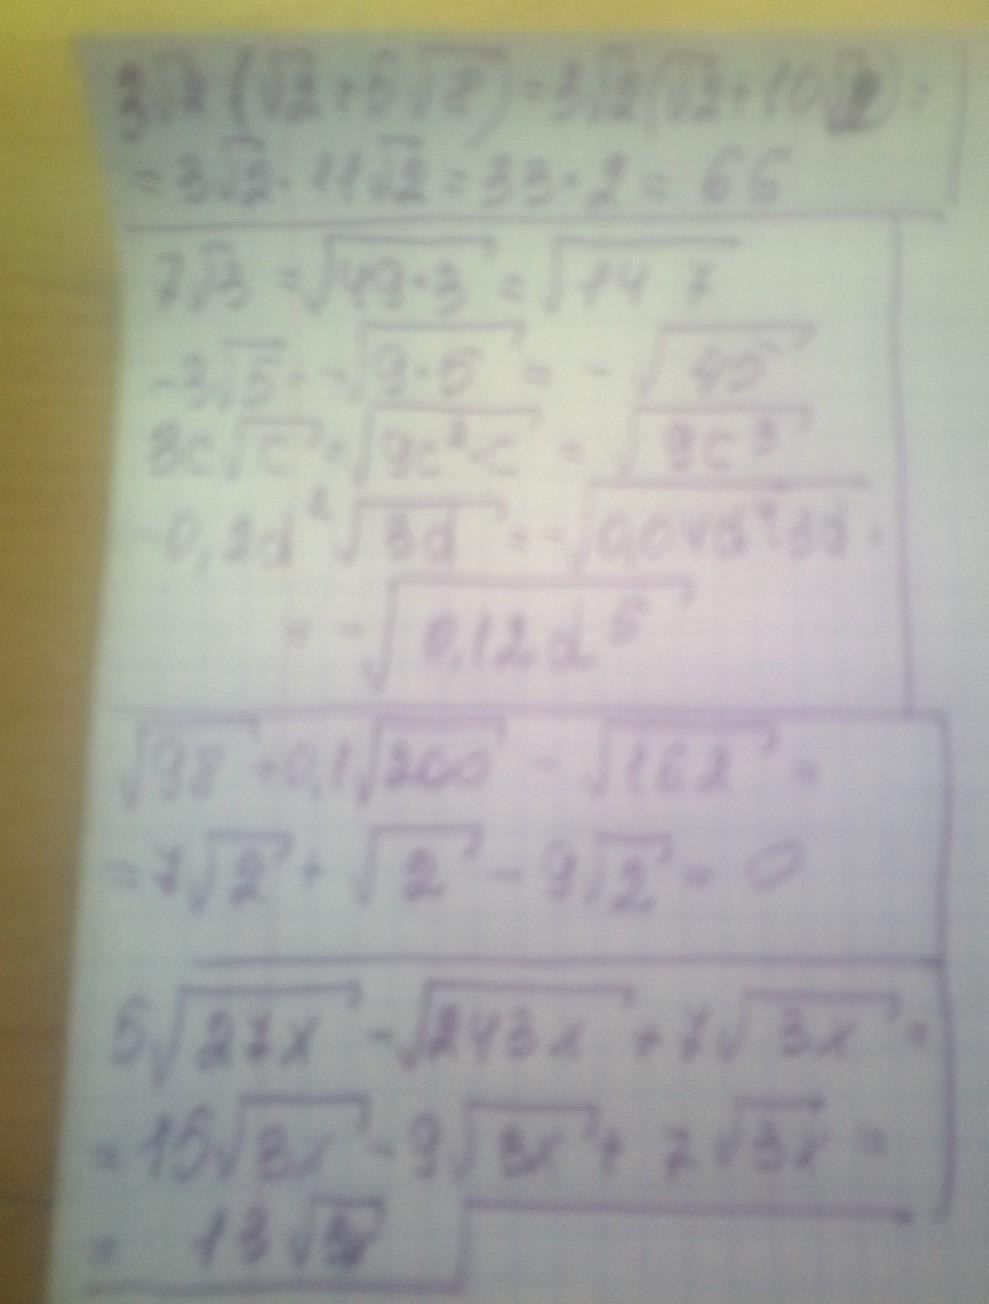 3√2 (√2 + 5√8) = 3√2 (√2 + 10√2) =
= 3√2 · 11√2 = 33 · 2 = 66
7√3 = √(49·3) = √147
-3√5 = -√(9·5) = -√45
3c√c = √(9c²·c) = √(9c³)
-0,2d²√(3d) = -√(0,04d⁴·3d) =
= -√(0,12d⁵)
√98 + 0,1√200 - √162 =
= 7√2 + √2 - 9√2 = 0
5√(27x) - √(243x) + 7√(3x) =
= 15√(3x) - 9√(3x) + 7√(3x) =
= 13√(3x)